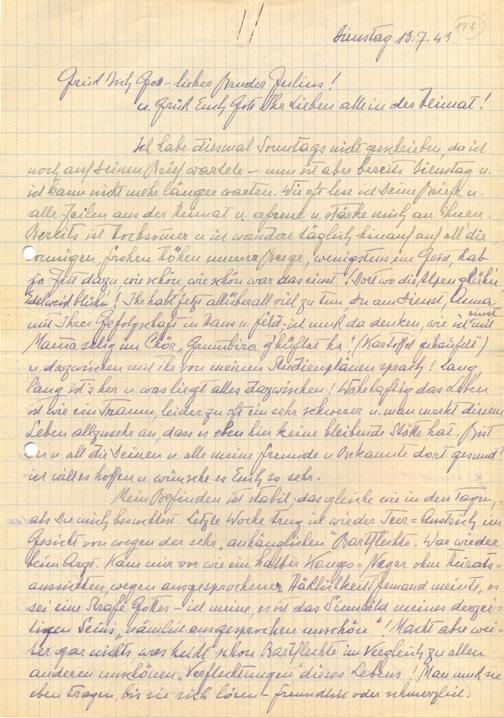 Dienstag 13.7.43
Grüß Dich Gott – lieber Bruder Julius!
u. Grüß Euch Gott Ihr Lieben alle in der Heimat!
Ich habe diesmal Sonntags nicht geschrieben, da ich
noch auf Deinen Brief wartete – nun ist aber bereits Dienstag u.
ich kann nicht mehr länger warten. Wie oft lese ich Deine Briefe u.
alle Zeilen aus der Heimat u. erfreue u. stärke mich an ihnen.
Bereits ist Hochsommer u. ich wandere täglich hinauf auf all die
sonnigen, frohen Höhen unserer Berge, wenigstens im Geist, hab
ja Zeit dazu, wie schön, wie schön war das einst! Dort wo die Alpen glühn
Edelweiß blühn! Ihr habt jetzt allüberall viel zu tun Du am Dienst,
mit Ihrer Gefolgschaft in Haus u. Feld, ich muß da denken, wie ich einst mit
Mama selig im Chör „Grumbira g'hüflat ha"! (Kartoffel gehäufelt)
u. dazwischen mit ihr von meinen Studienplänen sprach! Lang
lang ist's her u. was liegt alles dazwischen! Wahrhaftig das Leben
ist wie ein Traum, leider zu oft ein sehr schwerer u. man merkt diesem
Leben allzusehr an, dass es eben hier keine bleibende Stätte hat. Bist
Du u. all die Deinen u. alle meine Freunde u. Bekannte dort gesund?
ich will es hoffen u. wünsche es Euch so sehr.
Mein Befinden ist stabil, das gleiche wie in den Tagen,
als Du mich besuchtest. Letzte Woche trug ich wieder Teer=Anstrich im
Gesicht von wegen der sehr „anhänglichen" Bartflechte. War wieder
beim Arzt. Kam mir vor wie ein halber Kongo=Neger ohne Heirats=
aussichten, wegen ausgesprochener Häßlichkeit jemand meinte, es
sei eine Strafe Gottes – ich meine, es ist das Sinnbild meines derzei=
tigen Seins, „nämlich ausgesprochen unschöne"! Macht aber wei=
ter gar nichts was heißt schon Bartflechte im Vergleich zu allen
anderen unschönen „Verflechtungen" dieses Lebens! Man muß sie
eben tragen, bis sie sich lösen – freundlich oder schmerzlich.